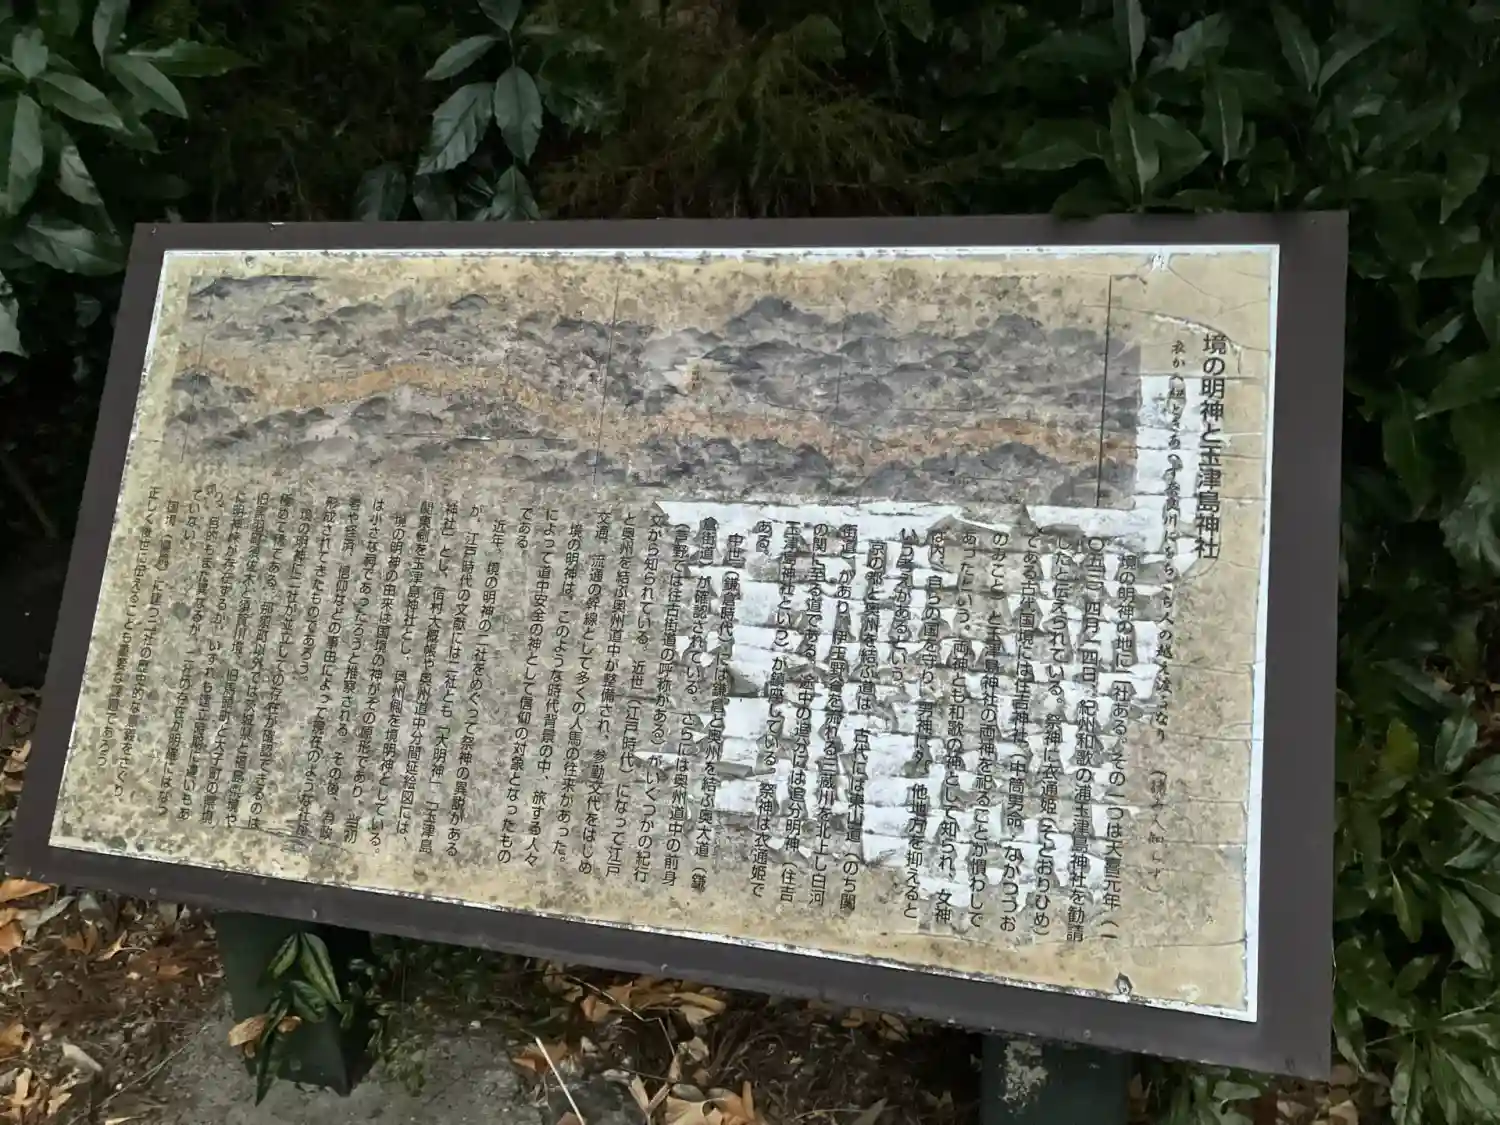 境の明神と玉津島神社
境の明神の地に二社ある。その一つは天喜元年（一
〇五三）四月一四日、紀州和歌の浦玉津島神社を勧請
したと伝えられている。祭神に衣通姫（そとおりひめ）
である。古代国境には住吉神社（中筒男命　なかつつお
のみこと）と玉津島神社の両神を祀ることが慣わしで
あったという。両神とも和歌の神として知られ、女神
は内、自らの国を守り、男神は外、他地方を抑えると
いう考えがあるという。
京の都と奥州を結ぶ道は、古代には東山道（のち関
街道）があり、伊王野谷を流れる三蔵川を北上し白河
の関に至る道である。途中の追分には追分明神（住吉
玉津島神社という）が鎮座している。祭神は衣通姫で
ある。
中世（鎌倉時代）には鎌倉と奥州を結ぶ奥大道（鎌
倉街道）が確認されている。さらには奥州道中の前身
（芦野では往古街道の呼称がある）がいくつかの紀行
文から知られている。近世（江戸時代）になって江戸
と奥州を結ぶ奥州道中が整備され、参勤交代をはじめ
交通、流通の幹線として多くの人馬の往来があった。
境の明神は、このような時代背景の中、旅する人々
によって道中安全の神として信仰の対象となったもの
である。
近年、境の明神の二社をめぐって祭神の異説がある
が、江戸時代の文献には二社とも「大明神」「玉津島
神社」とし、宿村大概帳や奥州道中分間延絵図には、
関東側を玉津島神社とし、奥州側を境明神としている。
境の明神の由来は国境の神がその原形であり、当初
は小さな祠であったろうと推察される。その後、為政
者や経済、信仰などの事由によって現在のような社殿
形成されてきたものであろう。
境の明神に二社が並立しての存在が確認できるのは
極めて稀である。那須町以外では茨城県と福島県境や
旧黒羽町須佐木と須賀川境、旧馬頭町と大子町の県境
に明神峠が存在するが、いずれも建立時期に違いもあ
り、目的もまた異なるが、二社の存在が明確にはなっ
ていない。
国境（県界）に建つ二社の歴史的な意義をさぐり、
正しく後世に伝えることも重要な課題であろう。